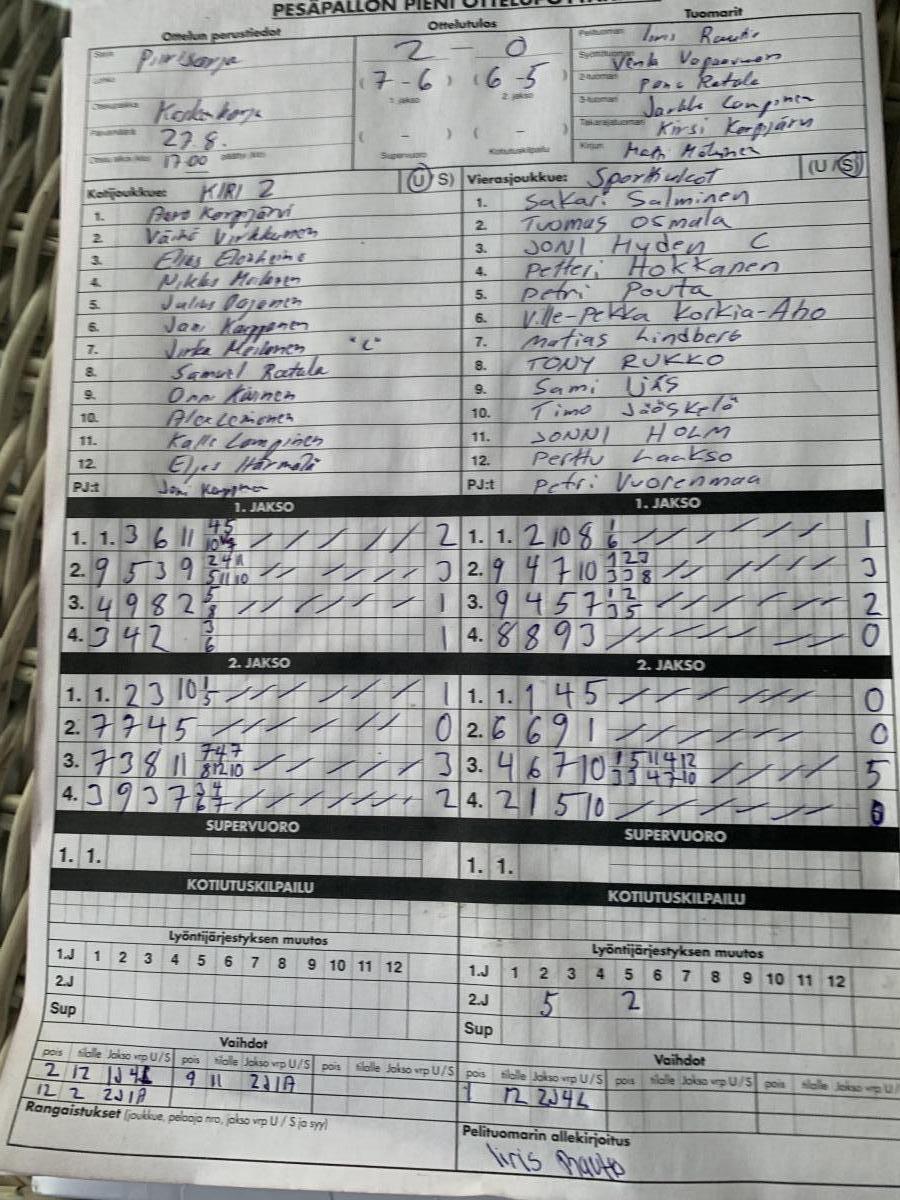 PESÄPALLON PIENI OTTELUPÖYTÄKIRJA
Ottelun perustiedot
Ottelutulos
Tuomarit
Sarja Piirisarja
2 - 0
Pelituomari Iiris Rauto
Lohko
(7-6) (6-5)
Syöttötuomari
1. jakso 2. jakso
2-tuomari
Ottelupaikka Koskenkorva
3-tuomari Jarkko Lampinen
Päivämäärä 27.8.
( - ) ( - )
Takarajatuomari Kirsi Korpijärvi
Ottelu alkoi (klo) 17.00 päättyi (klo)
Supervuoro Kotiutuskilpailu
Kirjuri
Kotijoukkue: KIRI 2 (U/S)
Vierasjoukkue: Sporthulcot (U/S)
1. Aaro Korpijärvi
1. Sakari Salminen
2. Väinö Virkkunen
2. Tuomas Osmala
3. Elias
3. JONI Hyden C
4. Niklas
4. Petteri Hokkanen
5. Julius
5. Petri Pouta
6. Jani Karppanen
6. Ville-Pekka Korkia-Aho
7. Jirka Meilonen "C"
7. Matias Lindberg
8. Samuel Ratala
8. TONY RUKKO
9. Onni
9. Sami IJÄS
10. Alex
10. Timo Jääskelä
11. Kalle Lampinen
11. JONNI HOLM
12. Elias Härmälä
12. Perttu Laakso
PJ:t Jani
PJ:t Petri Vuorenmaa
1. JAKSO
1. JAKSO
1. 1. 3 6 11 2
1. 1. 2 10 8 1 6 1
2. 9 5 3 9 2 4 11 5 11 10 3
2. 9 4 7 10 1 2 3 3 3 8 3
3. 4 9 8 2 5 8 1
3. 9 4 5 7 1 2 3 5 2
4. 3 4 2 3 6 1
4. 8 8 9 3 0
2. JAKSO
2. JAKSO
1. 1. 2 3 10 1 5 1
1. 1. 1 4 5 0
2. 7 7 4 5 0
2. 6 6 9 1 0
3. 7 3 8 11 7 4 7 8 12 10 3
3. 4 6 7 10 1 5 11 4 12 3 3 4 7 10 5
4. 3 9 3 7 3 4 6 7 2
4. 2 1 5 10 0
SUPERVUORO
SUPERVUORO
1. 1.
1. 1.
KOTIUTUSKILPAILU
KOTIUTUSKILPAILU
Lyöntijärjestyksen muutos
Lyöntijärjestyksen muutos
1.J 1 2 3 4 5 6 7 8 9 10 11 12
1.J 1 2 3 4 5 6 7 8 9 10 11 12
2.J
2.J 5 2
Sup
Sup
Vaihdot
Vaihdot
pois tilalle Jakso vrp U/S pois tilalle Jakso vrp U/S pois tilalle Jakso vrp U/S
pois tilalle Jakso vrp U/S pois tilalle Jakso vrp U/S pois tilalle Jakso vrp U/S
2 12 9 11 2J1A
1 12 2J4L
12 2 2J1A
Rangaistukset (joukkue, pelaaja nro, jakso vrp U / S ja syy)
Pelituomarin allekirjoitus
Iiris Rauto